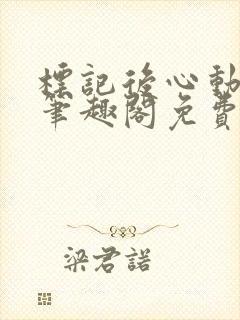 標記後心動
筆趣閣免費
梁君諾